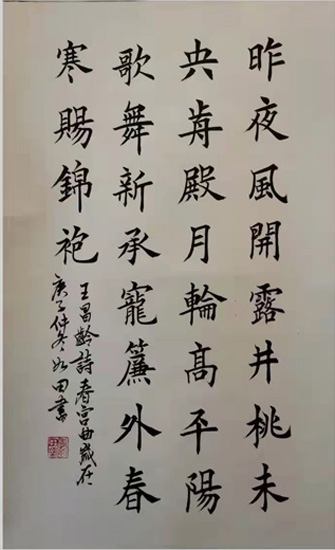 昨夜風開露井桃未
央歬殿月輪高平陽
歌舞新承寵簾外春
寒賜錦袍
王昌齡詩春宮曲歲在
庚子仲冬如田書